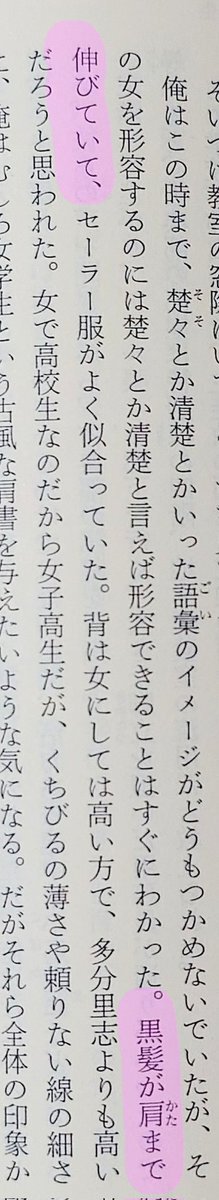 そいつは教室の窓際にいて
俺はこの時まで、楚々とか清楚とかいった語彙のイメージがどうもつかめないでいたが、そ
の女を形容するのには楚々とか清楚と言えば形容できることはすぐにわかった。黒髪が肩まで
伸びていて、セーラー服がよく似合っていた。背は女にしては高い方で、多分里志よりも高い
だろうと思われた。女で高校生なのだから女子高生だが、くちびるの薄さや頼りない線の細さ
に、俺はむしろ女学生という古風な肩書を与えたいような気になる。だがそれら全体の印象か